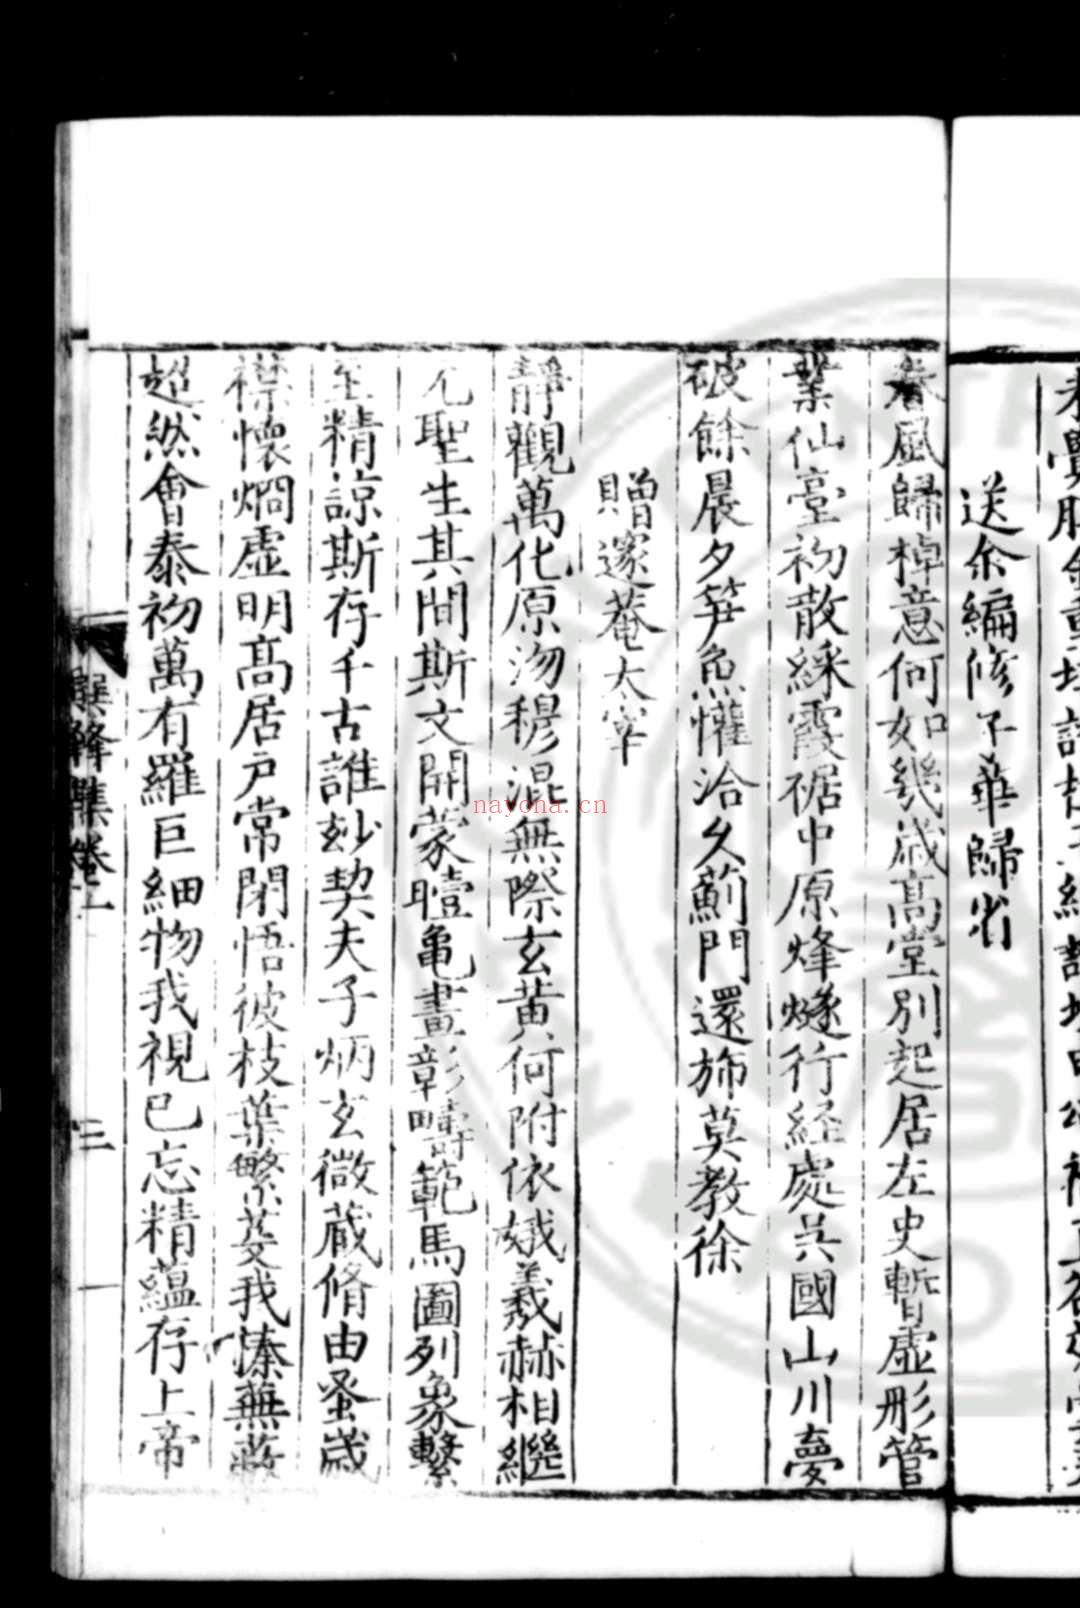 送余編修子華歸省
春風歸棹意何如幾歲高堂別起居左史暫虛彤管
業仙臺初散綵霞裾中原烽燧行經處吳國山川夢
破餘晨夕笋魚懽洽久薊門還斾莫教徐
贈邃菴太宰
靜觀萬化原沕穆混無際玄黄何附依娥羲赫相繼
元聖生其間斯文開蒙曀龜畫彰疇範馬圖列象繫
至精諒斯存千古誰玅契夫子炳玄微蔵脩由蚤嵗
襟懷烱虚明髙居户常閉悟彼枝葉繁芟我蓁蕪蔽
超然會泰初萬有羅巨細物我視已忘精蘊存上帝
峰集卷
三
nayona.cn